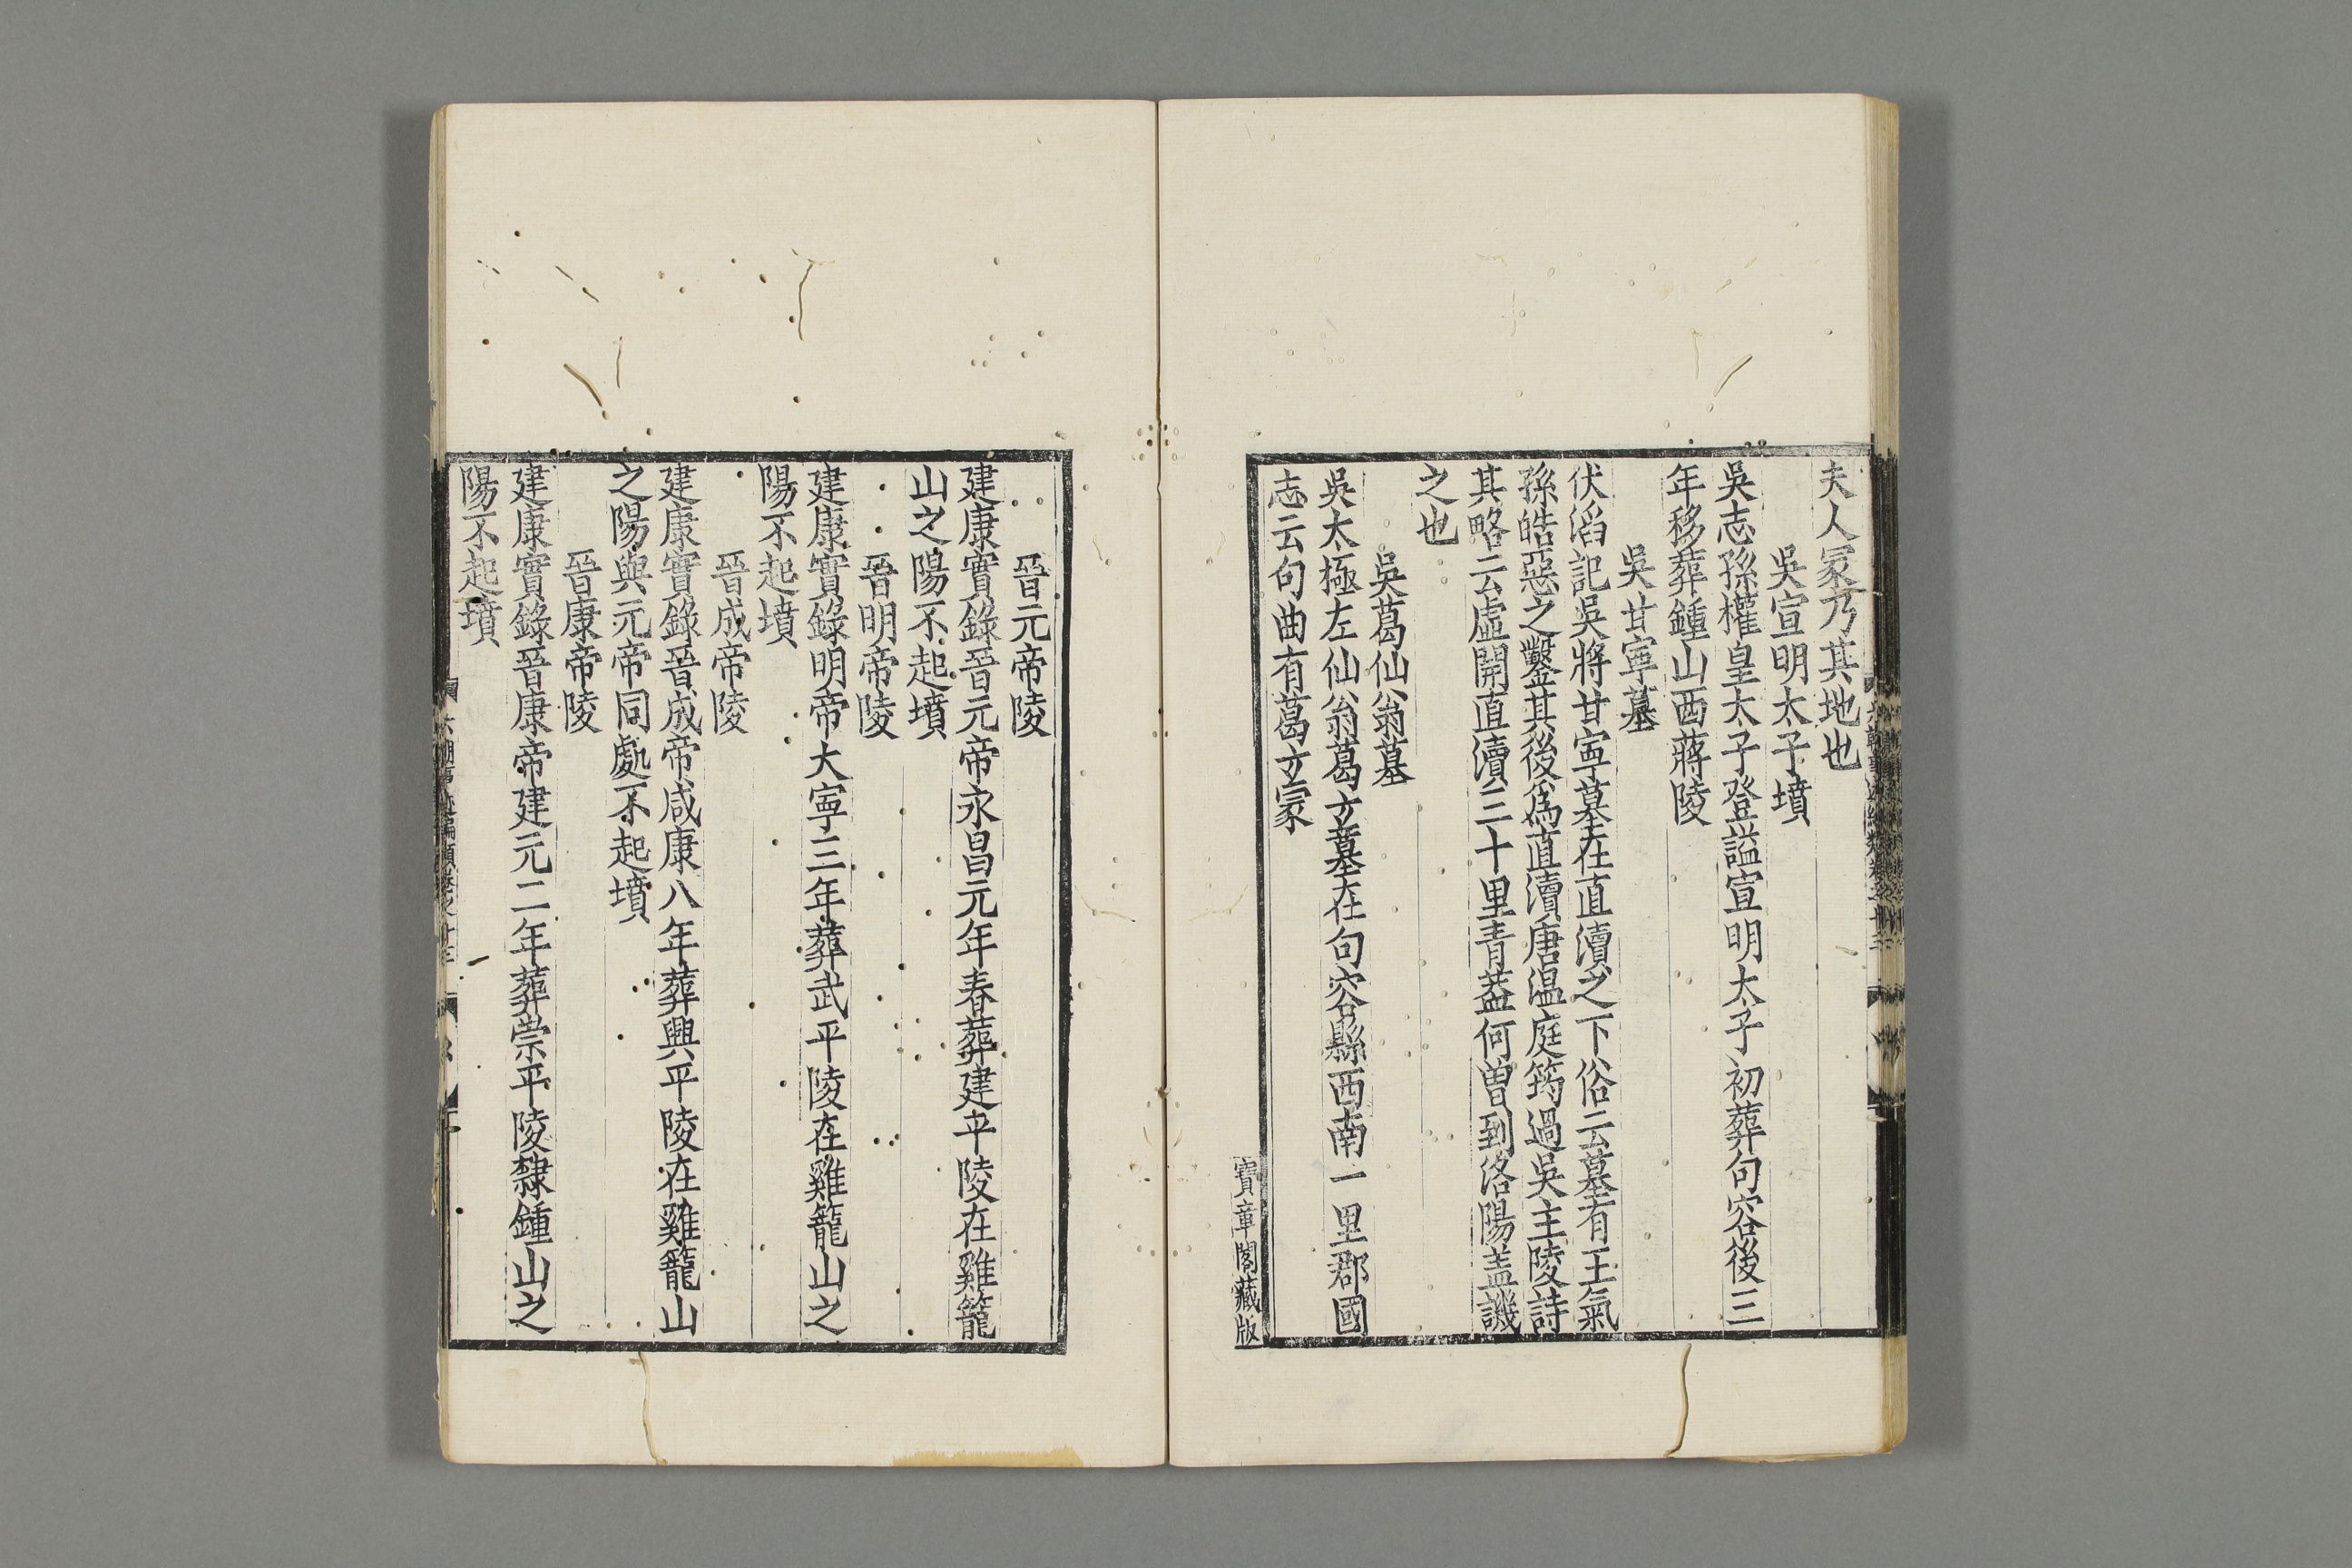 夫人冢乃其地也
吳宣明太子墳
吳志孫權皇太子登謚宣明太子初葬句容後三
年移葬鍾山西蔣陵
吳甘寧墓
伏滔記吳將甘寧墓在直瀆之下俗云墓有王氣
孫皓惡之鑿其後爲直瀆唐温庭筠過吳主陵詩
其略云虛開直瀆三十里青蓋何曾到洛陽盖譏
之也
吳葛仙翁墓
吳太極左仙翁葛玄墓在句容縣西南一里郡國
志云句曲有葛玄冢
寶章閣藏版
晉元帝陵
建康實錄晉元帝永昌元年春葬建平陵在雞籠
山之陽不起墳
晉明帝陵
建康實錄明帝大寧三年葬武平陵在雞籠山之
陽不起墳
晉成帝陵
建康實錄晉成帝咸康八年葬興平陵在雞籠山
之陽與元帝同處不起墳
晉康帝陵
建康實錄晉康帝建元二年葬崇平陵隸鍾山之
陽不起墳
六朝事迹編類卷之十三